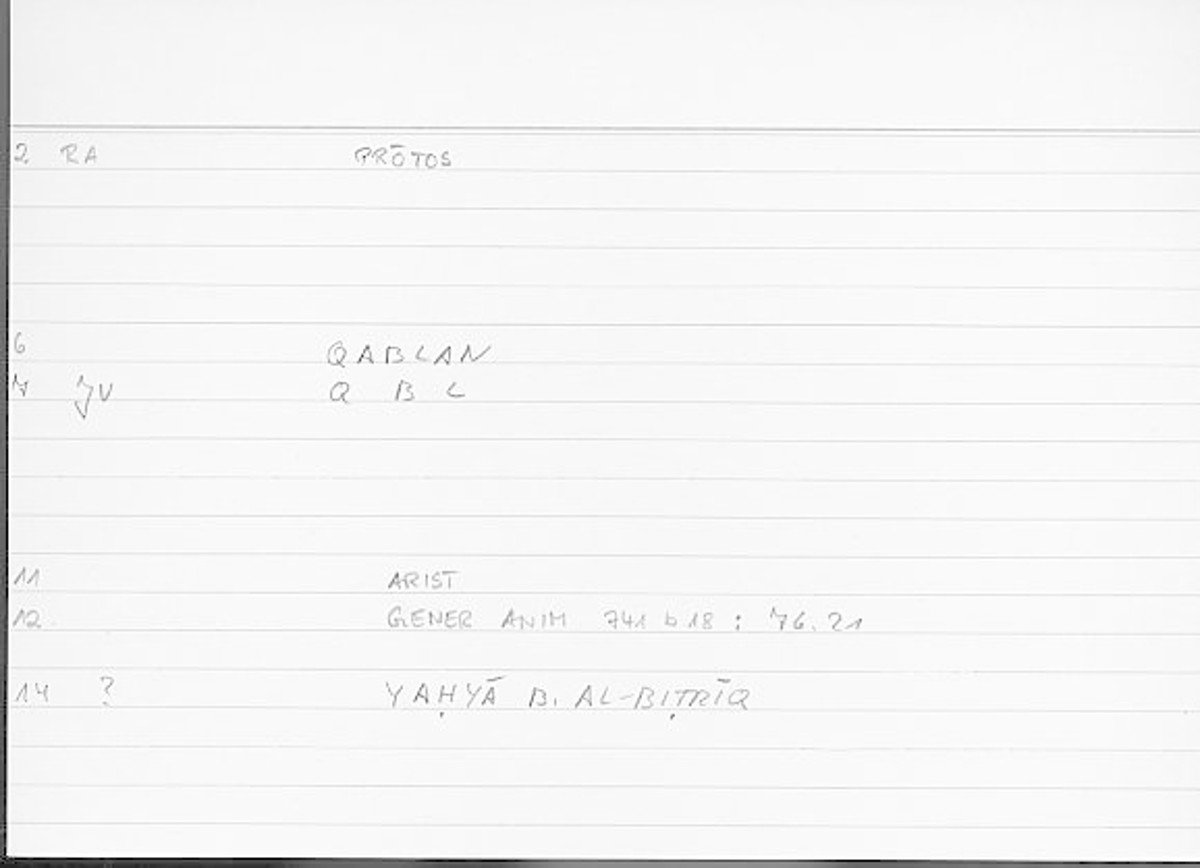 2 RA PRŌTOS
6 QABLAN
7 JV Q B L
11 ARIST
12 GENER ANIM 741 b 18 : 76.21
14 ? YAḤYĀ B. AL-BIṬRĪQ